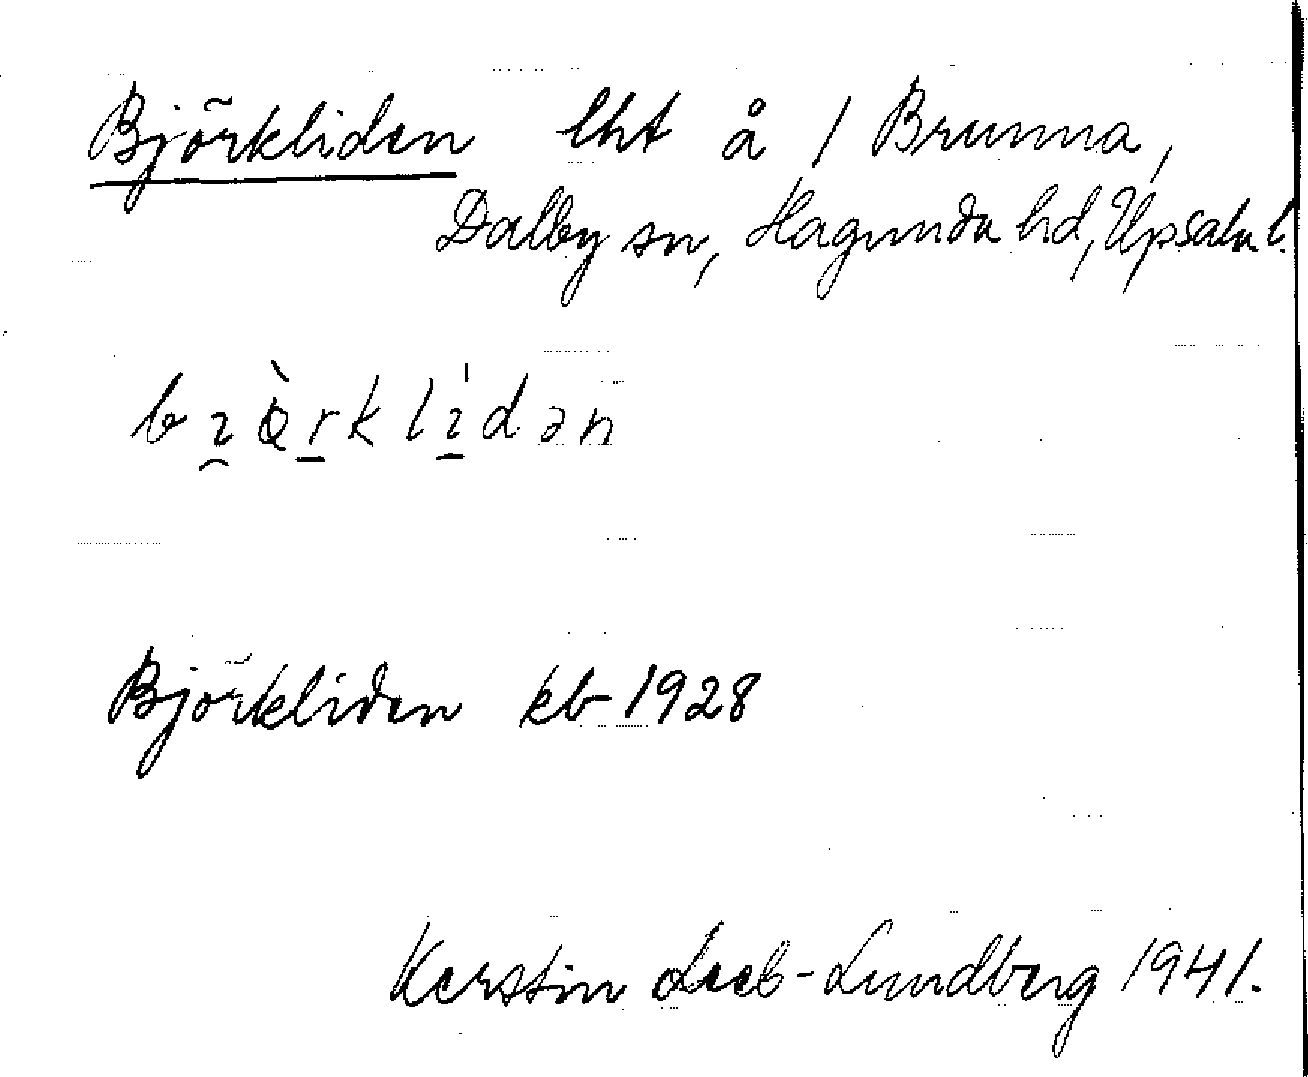 Björkliden lht å / Brunna,
Dalby sn, Hagunda hd, Upsala l.
Björkliden kb 1928
Kerstin Loeb-Lundberg 1941.